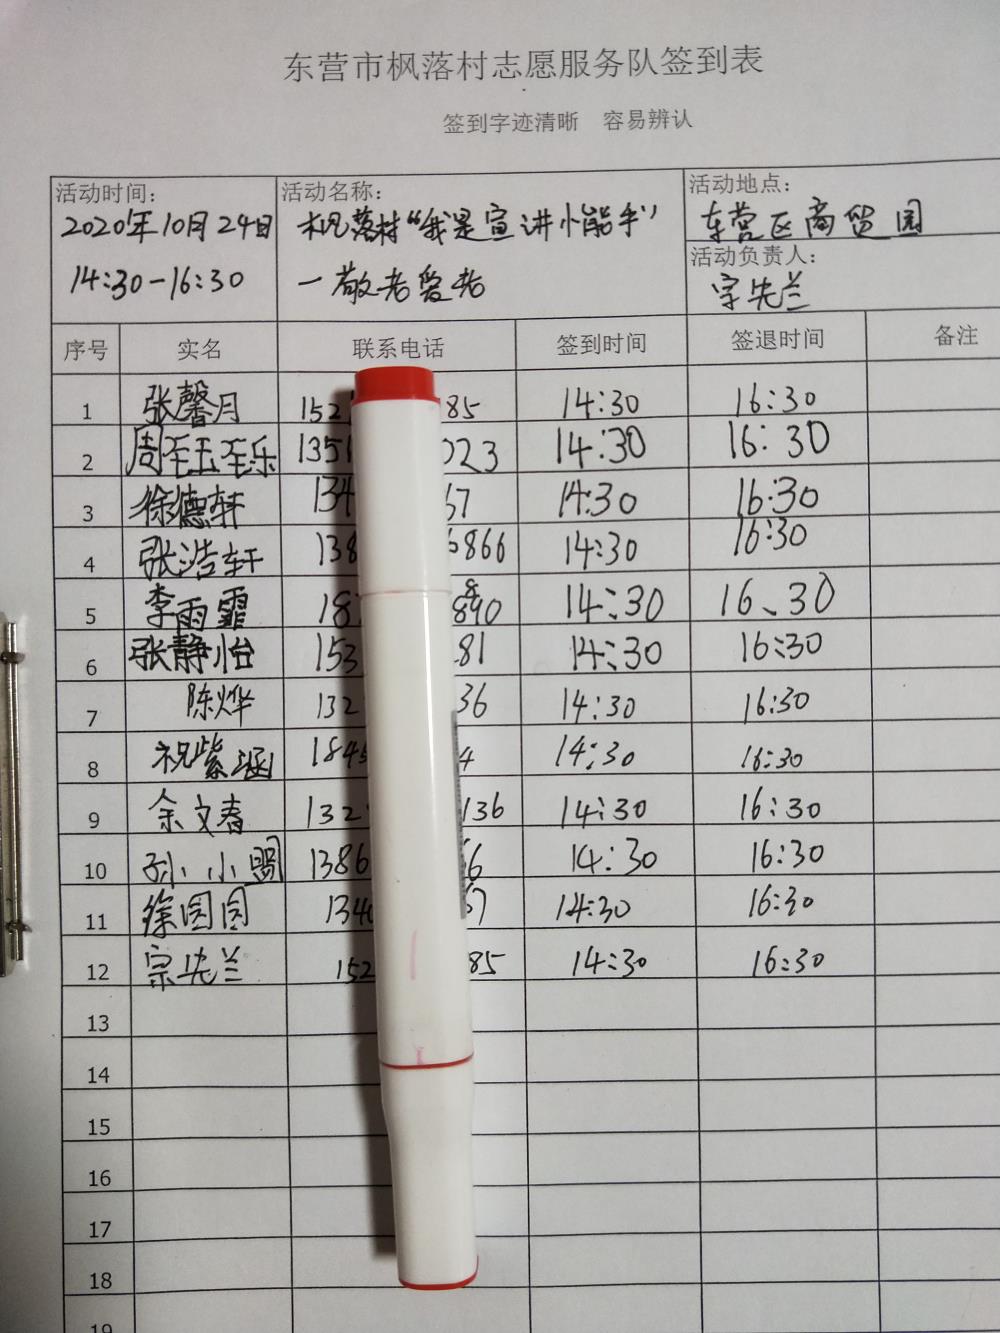 东营市枫落村志愿服务队签到表
签到字迹清晰 容易辨认
活动时间: 活动名称: 活动地点:
2020年10月24日 枫落村“我是宣讲小能手” 东营区商贸园
14:30-16:30 一敬老爱老 活动负责人:
宗先兰
序号 实名 联系电话 签到时间 签退时间 备注
1 张馨月 152 85 14:30 16:30
2 周 135 023 14:30 16:30
3 徐德轩 134 67 14:30 16:30
4 张浩轩 138 6866 14:30 16:30
5 李雨霏 18 890 14:30 16、30
6 张静怡 153 81 14:30 16:30
7 陈烨 132 36 14:30 16:30
8 祝紫涵 184 4 14:30 16:30
9 余文春 132 136 14:30 16:30
10 孙小 1386 6 14:30 16:30
11 徐圆圆 134 67 14:30 16:30
12 宗先兰 152 85 14:30 16:30
13
14
15
16
17
18
19